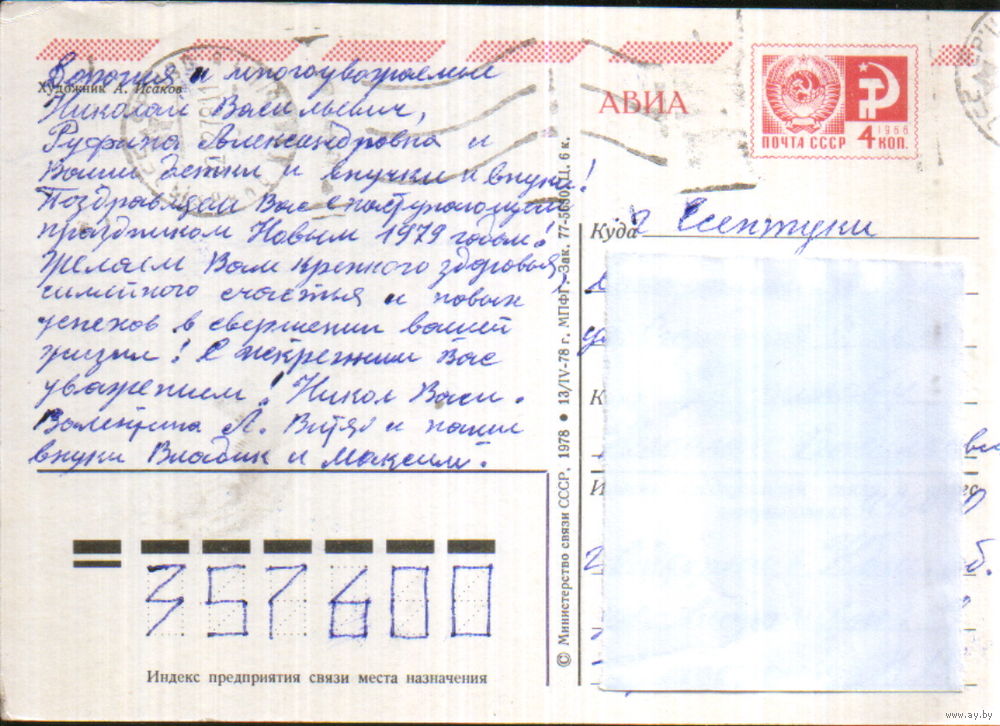 Дорогия и многоуважаемые
Художник А. Исаков
Николай Васильевич,
Руфина Александровна и
Ваши детки и внучки и внуки!
Поздравляем Вас с наступающим
праздником Новым 1979 годом!
Желаем Вам крепкого здоровья,
симейного счастья и новых
успехов в свершении вашей
жизни! С искренним Вас
уважением! Никол Васи.
Валентина А. Витя и наши
внуки Владик и Максим.
357600
Индекс предприятия связи места назначения
© Министерство связи СССР, 1978 ● 13/IV-78 г. МПФГ. Зак. 77-5630. Ц. 6 к.
АВИА
1966
ПОЧТА СССР 4 КОП.
Куда г Ессентуки
www.ay.by